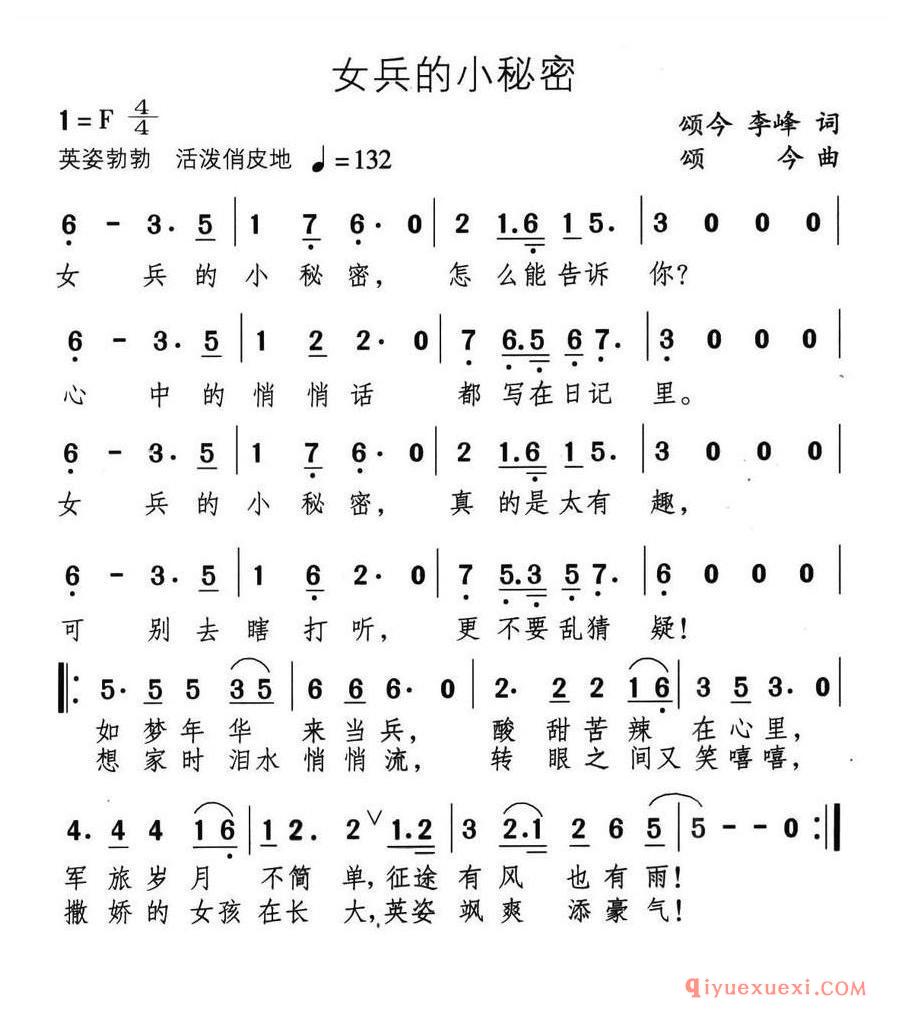 女兵的小秘密
1=F 4/4
颂今 李峰 词
英姿勃勃 活泼俏皮地 ♩=132
颂 今 曲
6 - 3. 5 | 1 7 6. 0 | 2 1.6 1 5. | 3 0 0 0 |
女 兵的小秘密, 怎么能告诉 你?
6 - 3. 5 | 1 2 2. 0 | 7 6.5 6 7. | 3 0 0 0 |
心 中的悄悄话 都写在日记 里。
6 - 3. 5 | 1 7 6. 0 | 2 1.6 1 5. | 3 0 0 0 |
女 兵的小秘密, 真的是太有 趣,
6 - 3. 5 | 1 6 2. 0 | 7 5.3 5 7. | 6 0 0 0 |
可 别去瞎打听, 更不要乱猜 疑!
‖: 5. 5 5 3 5 | 6 6 6. 0 | 2. 2 2 1 6 | 3 5 3. 0
如梦年华 来当兵, 酸甜苦辣 在心里,
想家时泪水悄悄流, 转眼之间又笑嘻嘻,
4. 4 4 1 6 | 1 2. 2 ∨ 1.2 | 3 2.1 2 6 5 | 5 - - 0 :‖
军旅岁月 不简单,征途有风 也有雨!
撒娇的女孩在长大,英姿飒爽 添豪气!
qiyuexuexi.com